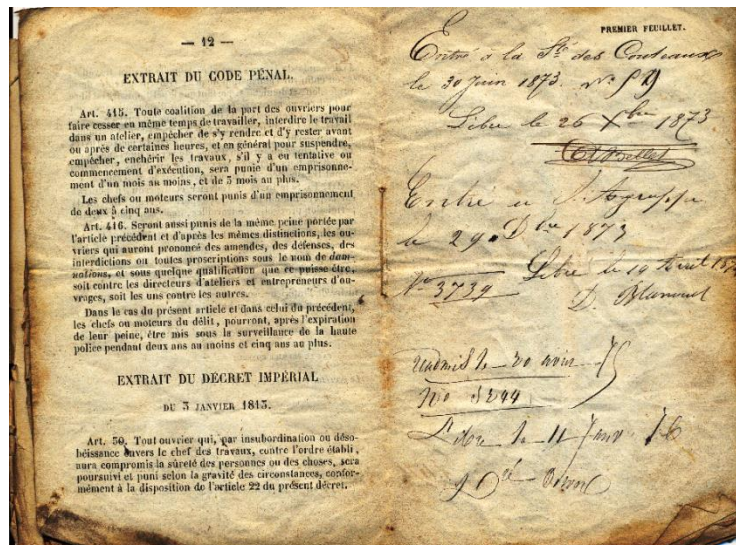 — 12 —
EXTRAIT DU CODE PÉNAL.
Art. 415. Toute coalition de la part des ouvriers pour
faire cesser en même temps de travailler, interdire le travail
dans un atelier, empêcher de s'y rendre et d'y rester avant
ou après de certaines heures, et en général pour suspendre,
empêcher, enchérir les travaux, s'il y a eu tentative ou
commencement d'exécution, sera punie d'un emprisonne-
ment d'un mois au moins, et de 3 mois au plus.
Les chefs ou moteurs seront punis d'un emprisonnement
de deux à cinq ans.
Art. 416. Seront aussi punis de la même peine portée par
l'article précédent et d'après les mêmes distinctions, les ou-
vriers qui auront prononcé des amendes, des défenses, des
interdictions ou toutes proscriptions sous le nom de dam-
nations, et sous quelque qualification que ce puisse être,
soit contre les directeurs d'ateliers et entrepreneurs d'ou-
vrages, soit les uns contre les autres.
Dans le cas du présent article et dans celui du précédent,
les chefs ou moteurs du délit, pourront, après l'expiration
de leur peine, être mis sous la surveillance de la haute
police pendant deux ans au moins et cinq ans au plus.
EXTRAIT DU DÉCRET IMPÉRIAL
DU 3 JANVIER 1813.
Art. 30. Tout ouvrier qui, par insubordination ou déso-
béissance envers le chef des travaux, contre l'ordre établi,
aura compromis la sûreté des personnes ou des choses, sera
poursuivi et puni selon la gravité des circonstances, confor-
mément à la disposition de l'article 22 du présent décret.
PREMIER FEUILLET.
Entré à la Sté des Couteaux
le 30 Juin 1873. N°
Libre le 26 Xbre 1873
Entré
le 29 Dbre 1873
Libre le 19 Avril
N° 3739
D.
le 30
No
Libre le 11 Janv 76